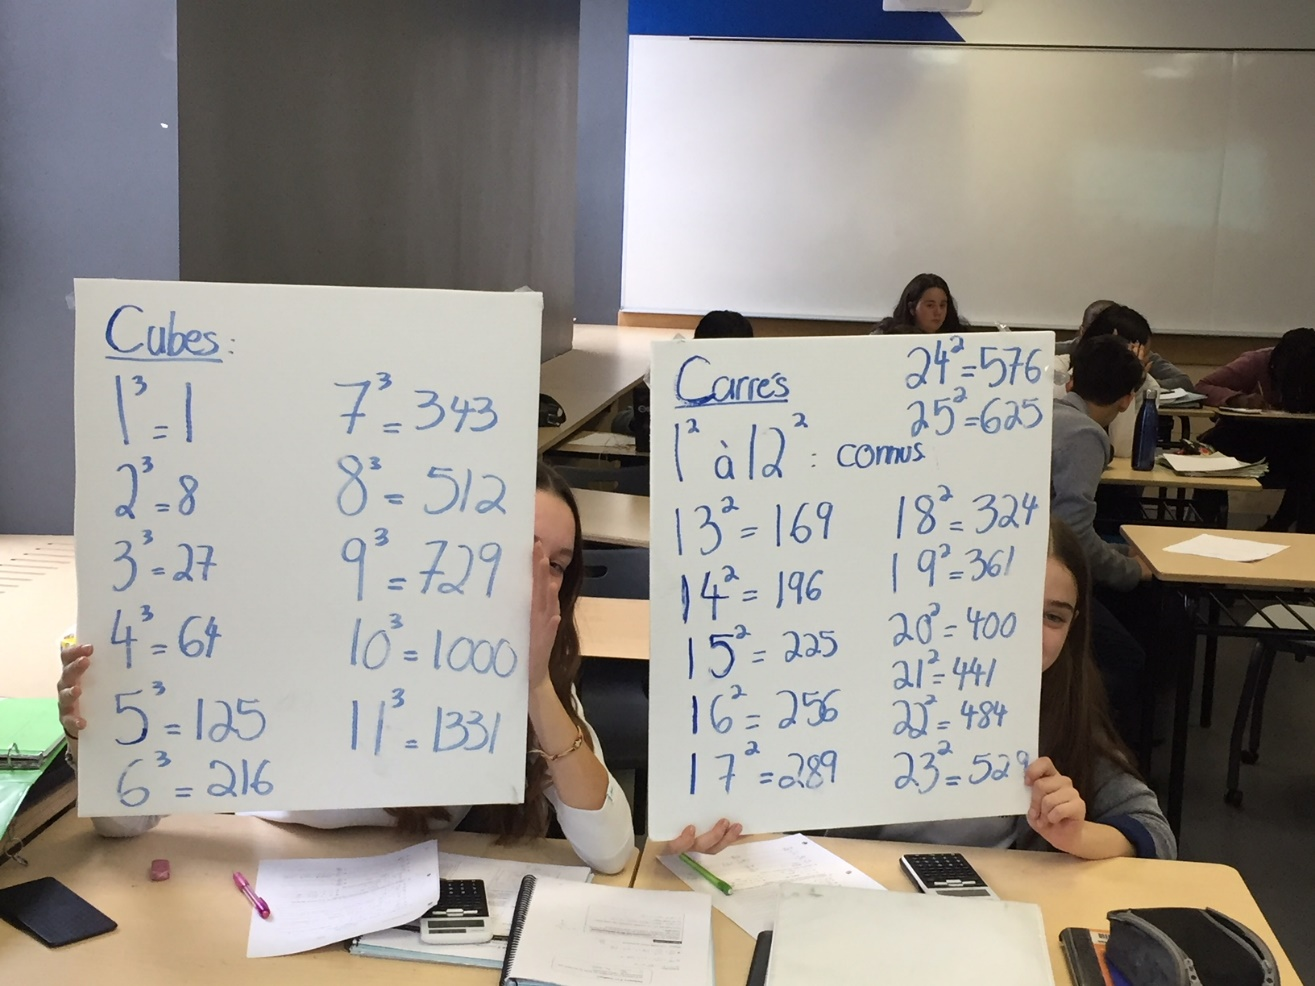 Cubes:
1³ = 1
2³ = 8
3³ = 27
4³ = 64
5³ = 125
6³ = 216
7³ = 343
8³ = 512
9³ = 729
10³ = 1000
11³ = 1331
Carrés
1² à 12² : connus
13² = 169
14² = 196
15² = 225
16² = 256
17² = 289
18² = 324
19² = 361
20² = 400
21² = 441
22² = 484
23² = 529
24² = 576
25² = 625